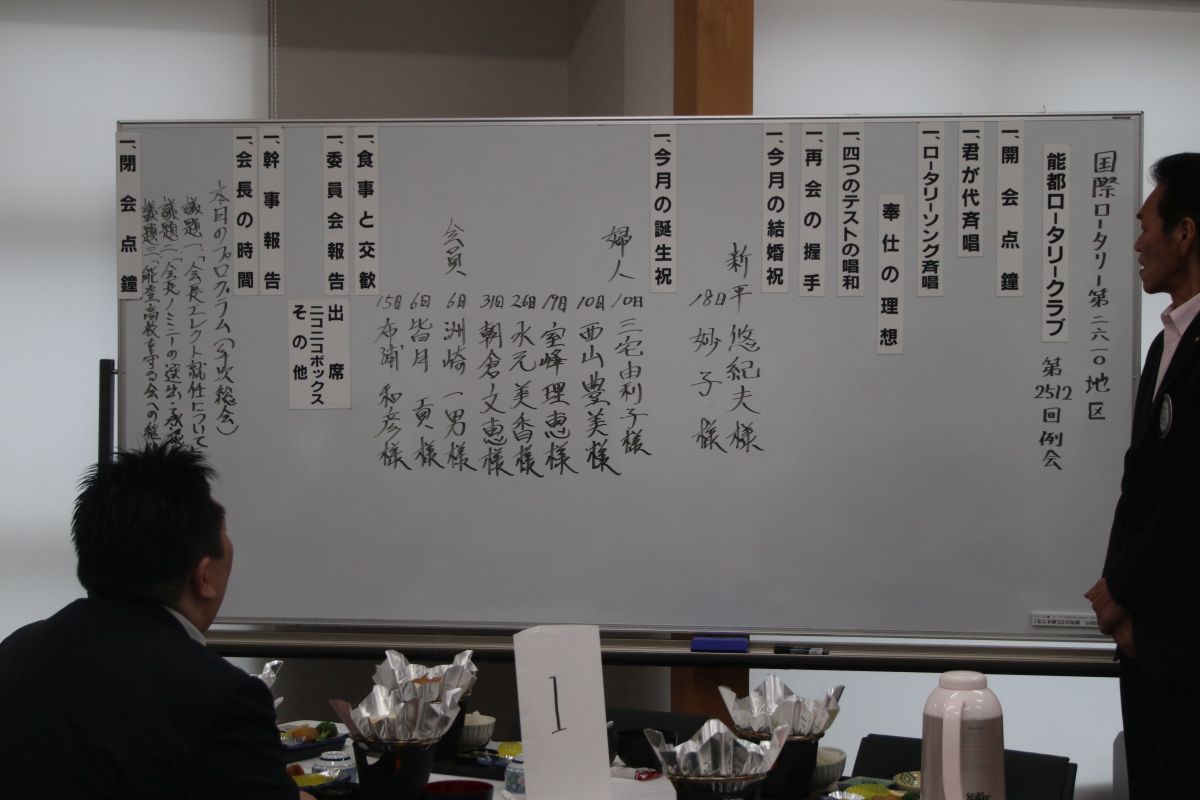 国際ロータリー第二六一〇地区
能都ロータリークラブ 第2512回例会
一、開会点鐘
一、君が代斉唱
一、ロータリーソング斉唱
奉仕の理想
一、四つのテストの唱和
一、再会の握手
一、今月の結婚祝
新平 悠紀夫様
18日 妙子様
一、今月の誕生祝
婦人 10日 三宅由利子様
10日 西山豊美様
19日 室峰理恵様
26日 水元美香様
31日 朝倉文恵様
会員 6日 洲崎一男様
6日 皆月 貢様
15日 布浦 和彦様
一、食事と交歓
一、委員会報告
出席
ニコニコボックス
その他
一、幹事報告
一、会長の時間
本日のプログラム(年次総会)
議題一、「会長エレクト就任について
議題二、「会長ノミニーの選出・承認
議題三、「能登高校を守る会への
一、閉会点鐘
1